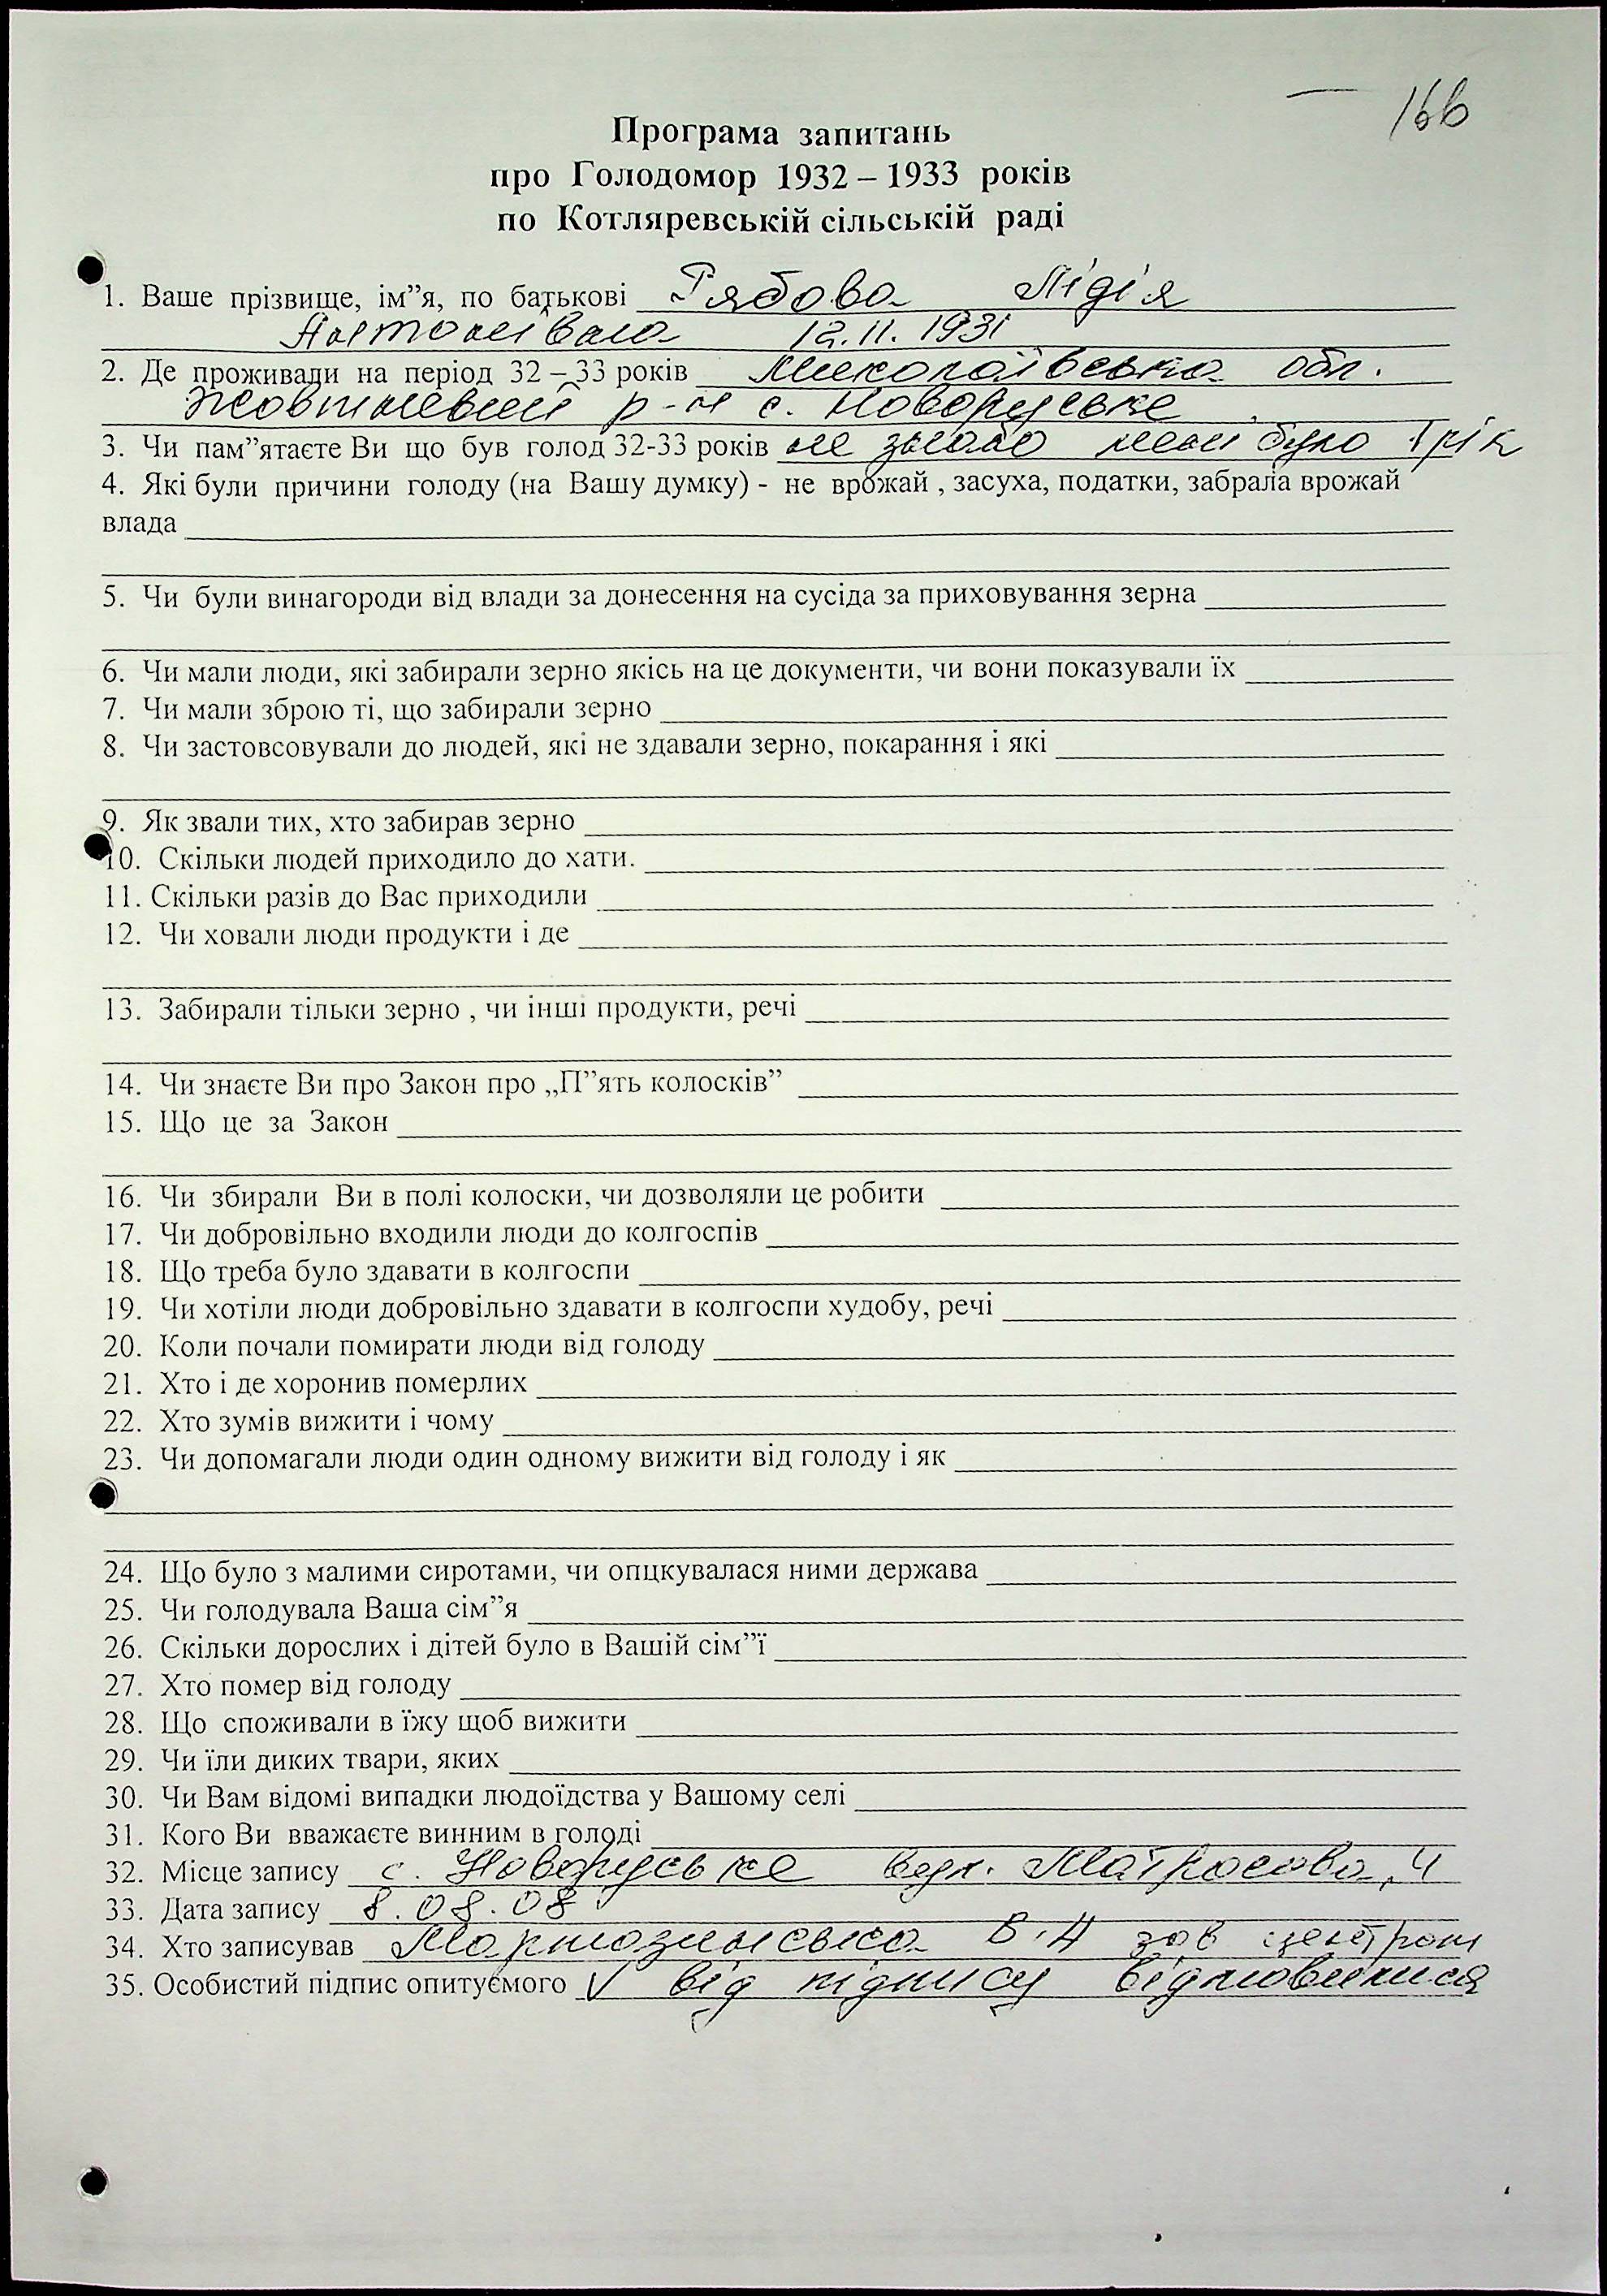 166
Програма запитань
про Голодомор 1932 – 1933 років
по Котляревській сільській раді
1. Ваше прізвище, ім”я, по батькові Рябова Лідія
Антонівна 12.11.1931
2. Де проживали на період 32 – 33 років Миколаївська обл.
Жовтневий р-н с. Новоруське
3. Чи пам”ятаєте Ви що був голод 32-33 років не знаю мені було 1 рік
4. Які були причини голоду (на Вашу думку) - не врожай , засуха, податки, забрала врожай
влада
5. Чи були винагороди від влади за донесення на сусіда за приховування зерна
6. Чи мали люди, які забирали зерно якісь на це документи, чи вони показували їх
7. Чи мали зброю ті, що забирали зерно
8. Чи застовсовували до людей, які не здавали зерно, покарання і які
9. Як звали тих, хто забирав зерно
10. Скільки людей приходило до хати.
11. Скільки разів до Вас приходили
12. Чи ховали люди продукти і де
13. Забирали тільки зерно , чи інші продукти, речі
14. Чи знаєте Ви про Закон про „П”ять колосків”
15. Що це за Закон
16. Чи збирали Ви в полі колоски, чи дозволяли це робити
17. Чи добровільно входили люди до колгоспів
18. Що треба було здавати в колгоспи
19. Чи хотіли люди добровільно здавати в колгоспи худобу, речі
20. Коли почали помирати люди від голоду
21. Хто і де хоронив померлих
22. Хто зумів вижити і чому
23. Чи допомагали люди один одному вижити від голоду і як
24. Що було з малими сиротами, чи опцкувалася ними держава
25. Чи голодувала Ваша сім”я
26. Скільки дорослих і дітей було в Вашій сім”ї
27. Хто помер від голоду
28. Що споживали в їжу щоб вижити
29. Чи їли диких твари, яких
30. Чи Вам відомі випадки людоїдства у Вашому селі
31. Кого Ви вважаєте винним в голоді
32. Місце запису с. Новоруське вул. Матросова, 4
33. Дата запису 8.08.08
34. Хто записував В.А зав центром
35. Особистий підпис опитуємого V від підпису відмовилися